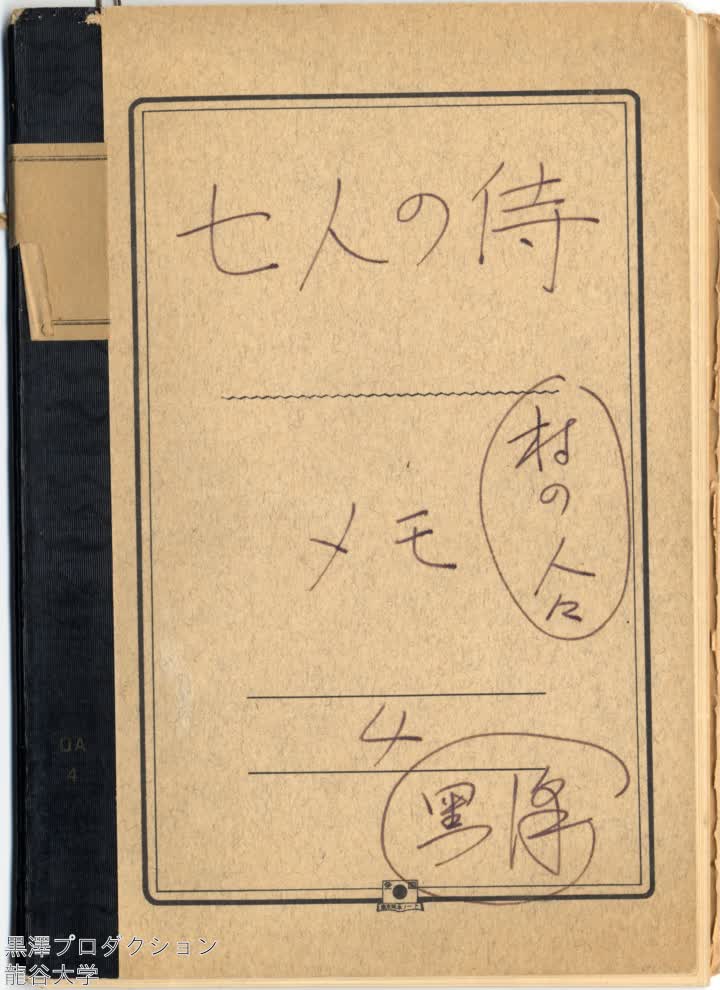 七人の侍
村の人々
メモ
4
黒澤
QA
4
黒澤プロダクション
龍谷大学